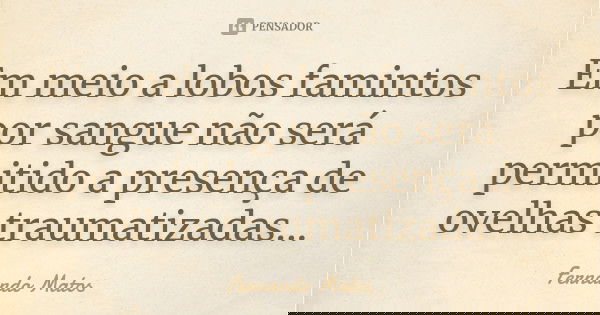 PENSADOR
Em meio a lobos famintos
por sangue não será
permitido a presença de
ovelhas traumatizadas...
Fernando Matos